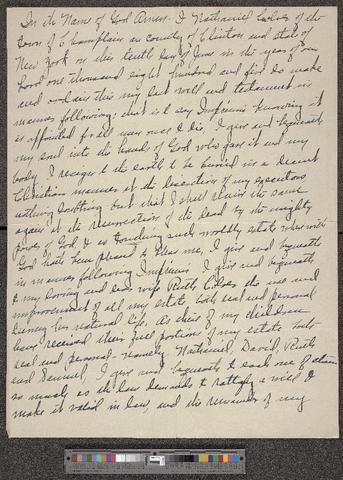 In the Name of God Amen. I Nathaniel of the
town of Champlain in county of Clinton and state of
New York on this tenth day of June in the year of our
Lord one thousand eight hundred and five do make
and ordain this my last will and testament in
manner following; that is I say Imprimis knowing it
is appointed for all men once to die, I give and bequeath
my soul into the hands of God who gave it and my
body I recogn to the earth to be buried in a decent
Christian manner at the discretion of my executors
nothing doubting but that I shall receive the same
again at the resurrection of the dead by the mighty
power of God, & as touching such worldly estate wherewith
God hath been pleased to bless me, I give and bequeath
in manner following Imprimis I give and bequeath
to my loving and dear wife Ruth the use and
improvement of all my estate both real and personal
during her natural life. As their of my children
have received their full portions of my estate both
real and personal - namely Nathaniel, David, Ruth
and Samuel, I give and bequeath to each one of them
so much as the law demands to ratify a will &
make it valid in law, and the remainder of my